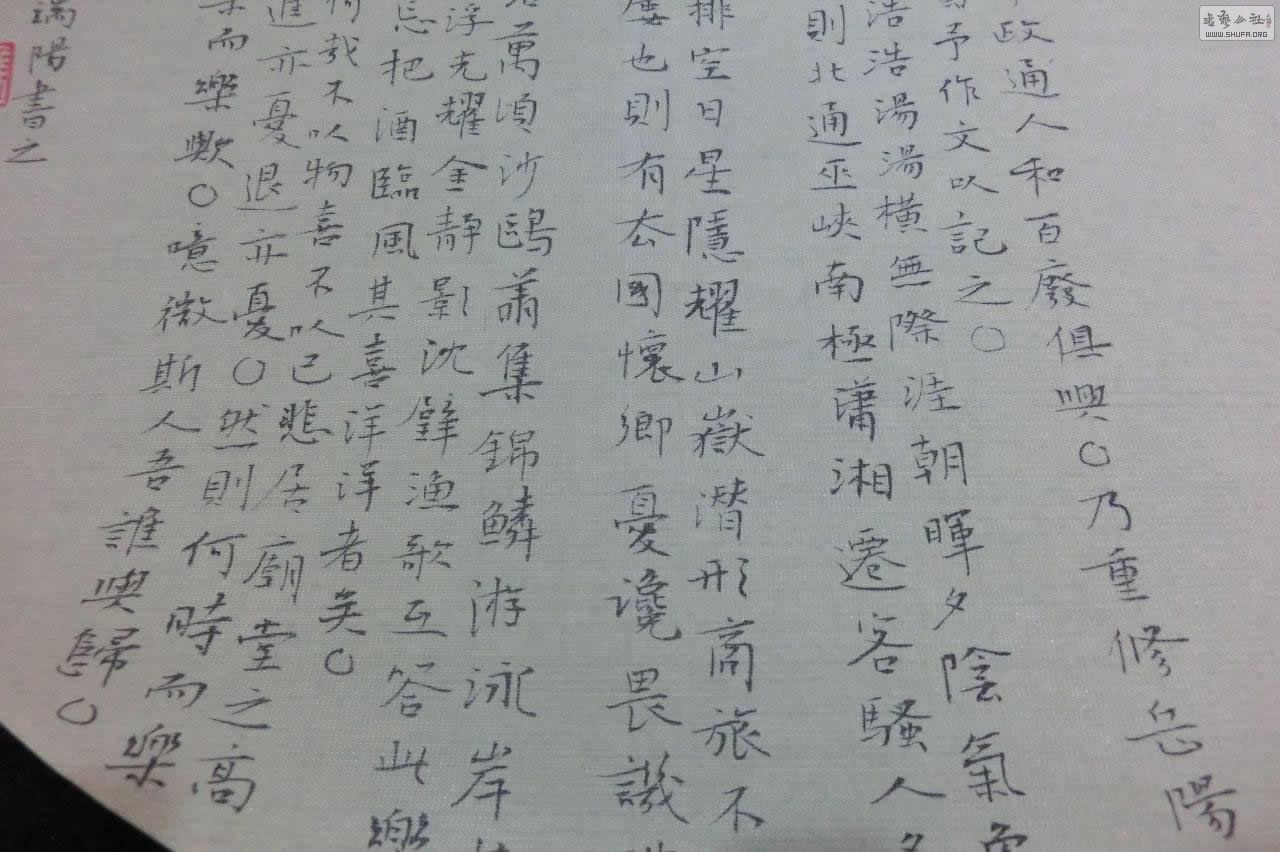 政通人和百廢俱興○乃重修岳陽
予作文以記之○
浩浩湯湯橫無際涯朝暉夕陰氣
則北通巫峽南極瀟湘遷客騷人
排空日星隱耀山嶽潛形商旅不
也則有去國懷鄉憂讒畏譏
萬頃沙鷗集錦鱗游泳岸
浮光耀金靜影沈璧漁歌互答此樂
把酒臨風其喜洋洋者矣○
哉不以物喜不以己悲居廟堂之高
進亦憂退亦憂○然則何時而樂
而樂歟○噫微斯人吾誰與歸○
端陽書之
書藝公社
WWW.SHUFA.ORG